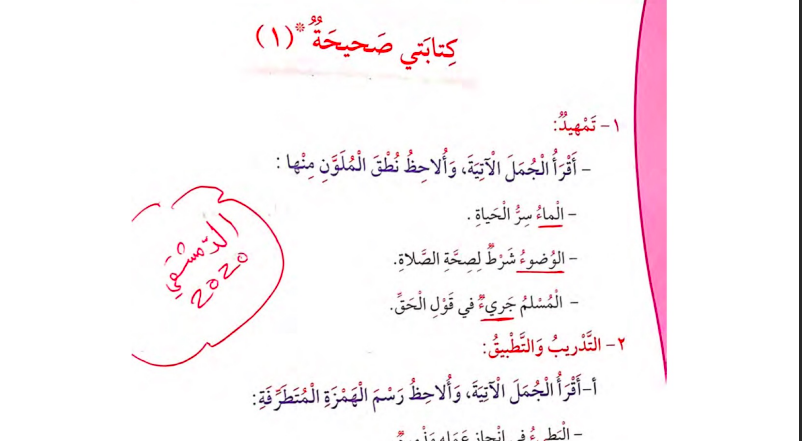 كِتابَتي صَحيحَةٌ *(١)
١- تَمْهيدٌ:
- أَقْرَأُ الْجُمَلَ الْآتِيَةَ، وَأُلاحِظُ نُطْقَ الْمُلَوَّنِ مِنْها :
- الْماءُ سِرُّ الْحَياةِ .
- الوُضوءُ شَرْطٌ لِصِحَّةِ الصَّلاةِ.
- الْمُسْلمُ جَريءٌ في قَوْلِ الْحَقِّ.
الدمشقي
2020
٢- التَّدْريبُ وَالتَّطْبيقُ:
أ-أَقْرَأُ الْجُمَلَ الْآتِيَةَ، وَأُلاحِظُ رَسْمَ الْهَمْزَةِ الْمُتَطَرِّفَةِ:
- الْبَطيءُ في إنْجازِ عَمَلِهِ